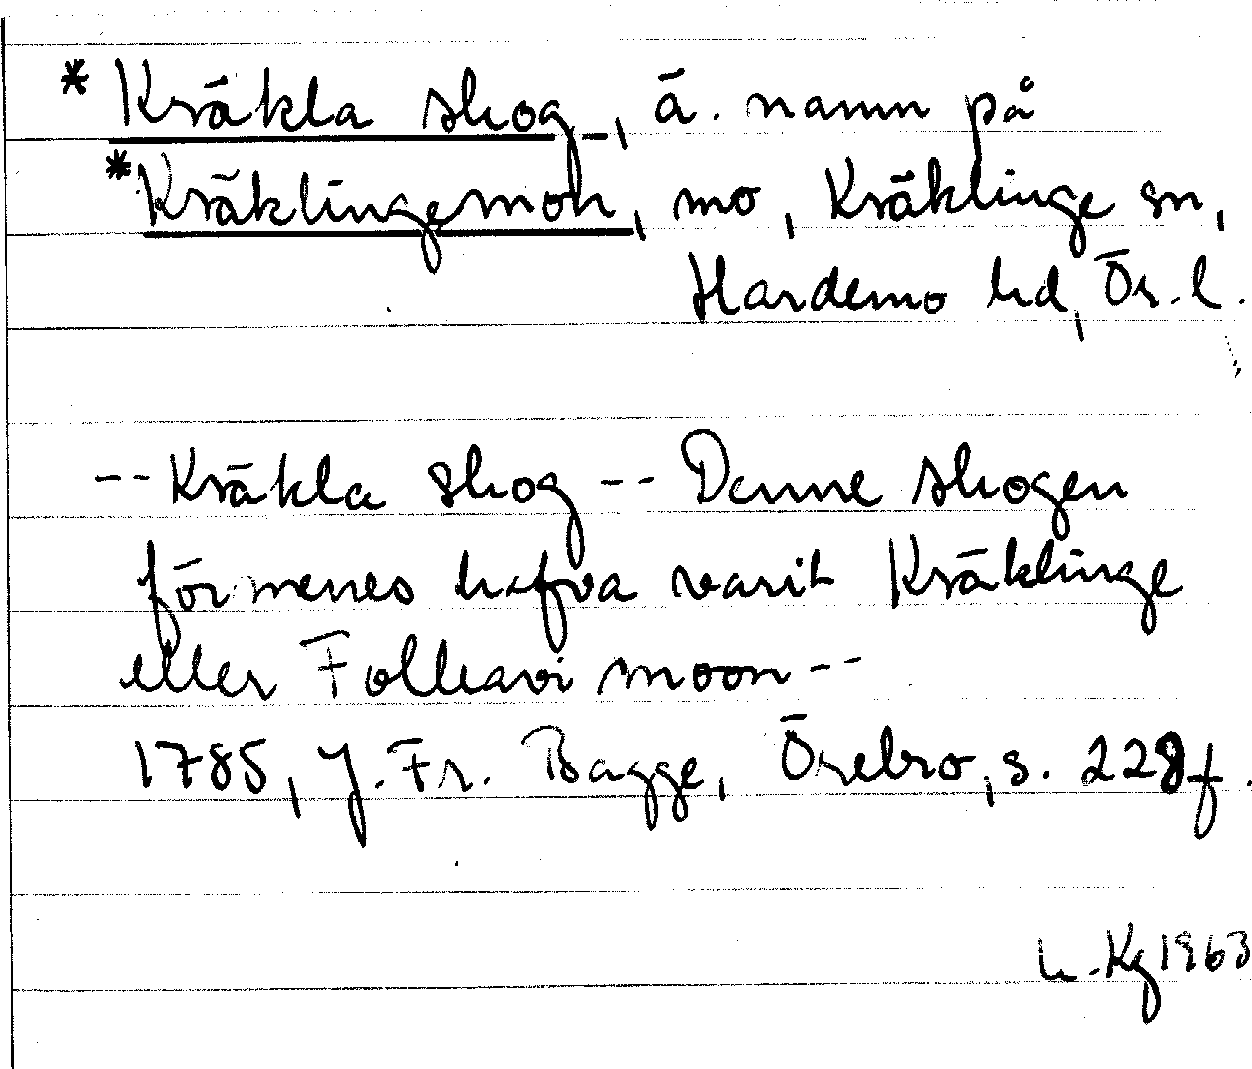 *Kräkla skog, ä. namn på
*Kräklingemon, mo, Kräklinge sn,
Hardemo hd, Ör. l.
-- Kräkla skog -- Denne skogen
förmenes hafva varit Kräklinge
eller Folkavi moon --
1785, J. Fr. Bagge, Örebro, s. 228 f.
Kg 1963